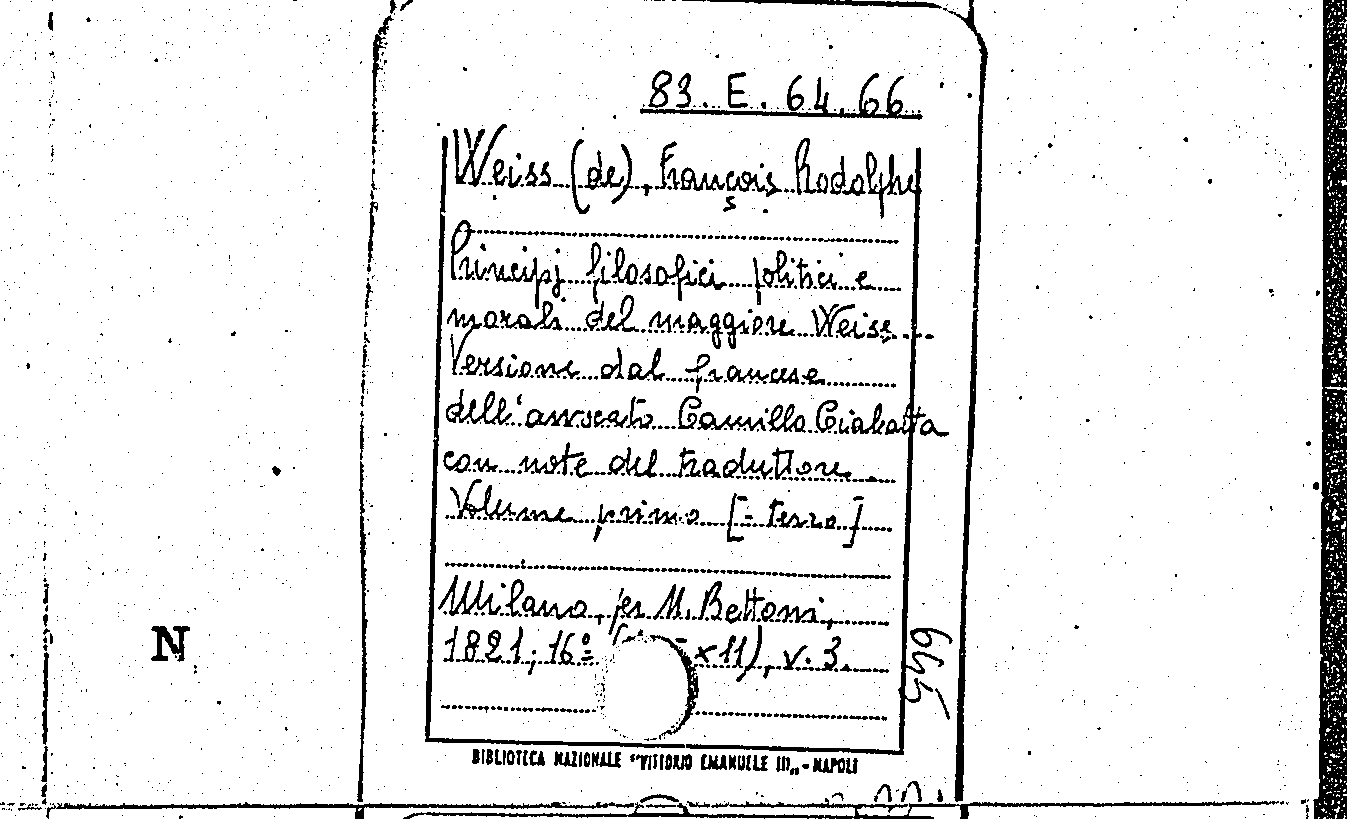 83. E. 64. 66
Weiss (de), François Rodolphe
Principj filosofici politici e
morali del maggiore Weiss...
Versione dal francese
dell'avvocato Camillo Ciabatta
con note del traduttore.
Volume primo [- terzo]
Milano, per N. Bettoni,
1821, 16º x11), v. 3.
645
N
BIBLIOTECA NAZIONALE "VITTORIO EMANUELE III„ - NAPOLI